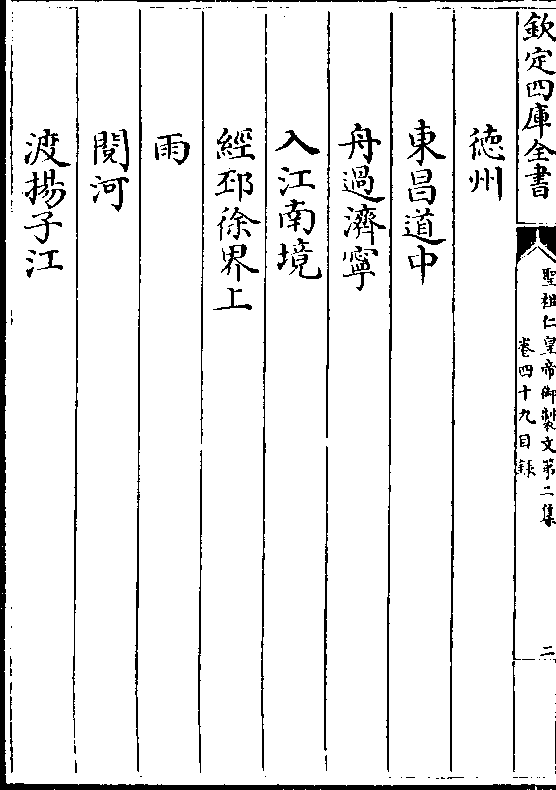 欽定四庫全書
聖祖仁皇帝御製文第二集
卷四十九目録
二
德州
東昌道中
舟過濟寧
入江南境
經邳徐界上
雨
閱河
渡揚子江